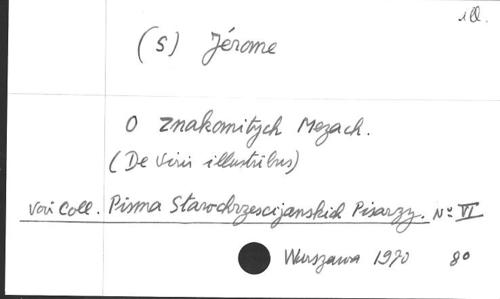 ill.
(S) Jérome
O znakomitych Mezach.
(De Viris illustribus)
Voir Coll. Pisma Starochrzescijanskich Pisarzy. No VI
Warszawa 1970 8o